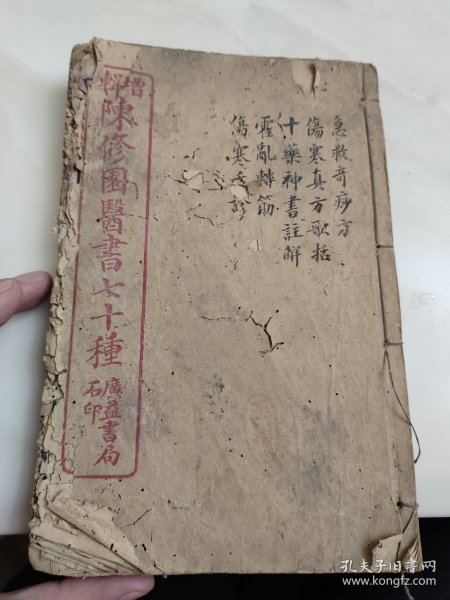 增輯
陳修園醫書七十種
廣益書局
石印
急救奇痧方
傷寒真方歌括
十藥神書註解
霍亂轉筋
傷寒舌診
孔夫子旧书网
www.kongfz.com